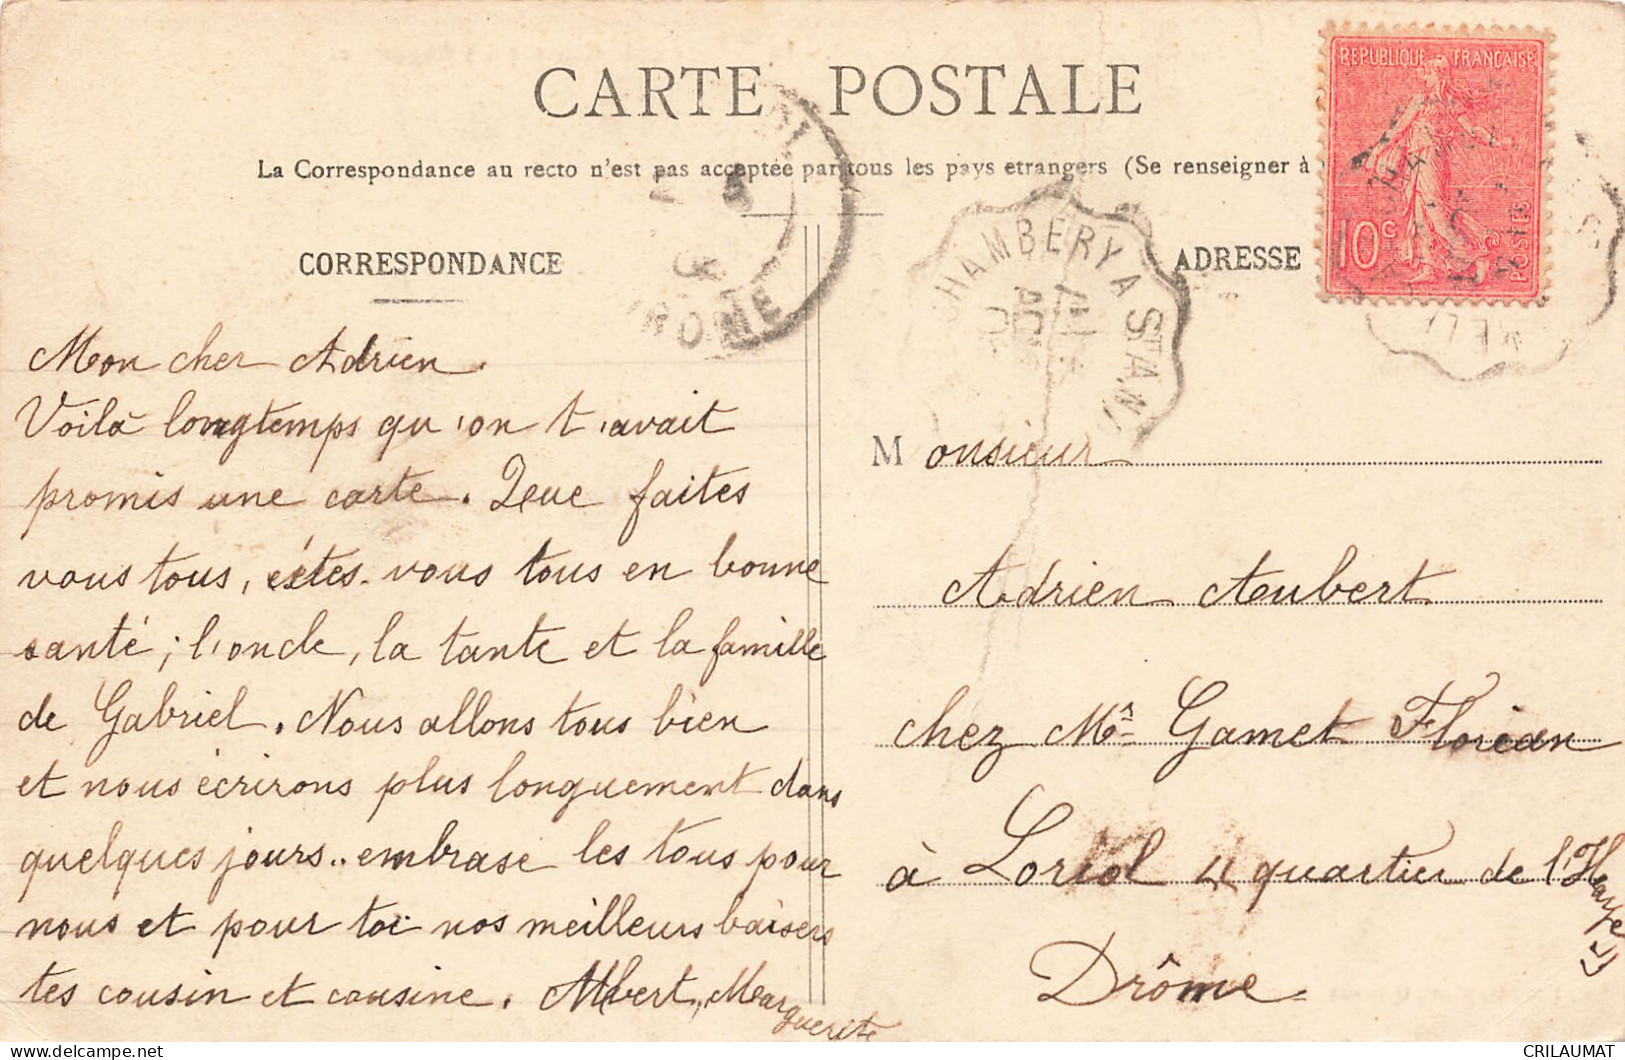 CARTE POSTALE
La Correspondance au recto n'est pas acceptée par tous les pays etrangers (Se renseigner à
REPUBLIQUE FRANÇAISE
10c
POSTES
CORRESPONDANCE
ADRESSE
CHAMBERY A ST
Mon cher Adrien.
Voilà longtemps qu'on t'avait
promis une carte. Que faites
vous tous, êtes-vous tous en bonne
santé; l'oncle, la tante et la famille
de Gabriel. Nous allons tous bien
et nous écrirons plus longuement dans
quelques jours.. embrase les tous pour
nous et pour toi nos meilleurs baisers
tes cousin et cousine. Albert, Marguerite
Monsieur
Adrien Aubert
chez Mr Gamet
à Loriol quartier de
Drôme.
CRILAUMAT